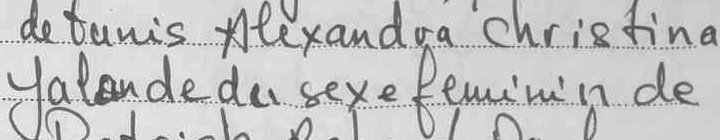 de tunis Alexandra Christina
Yalande du sexe feminin de